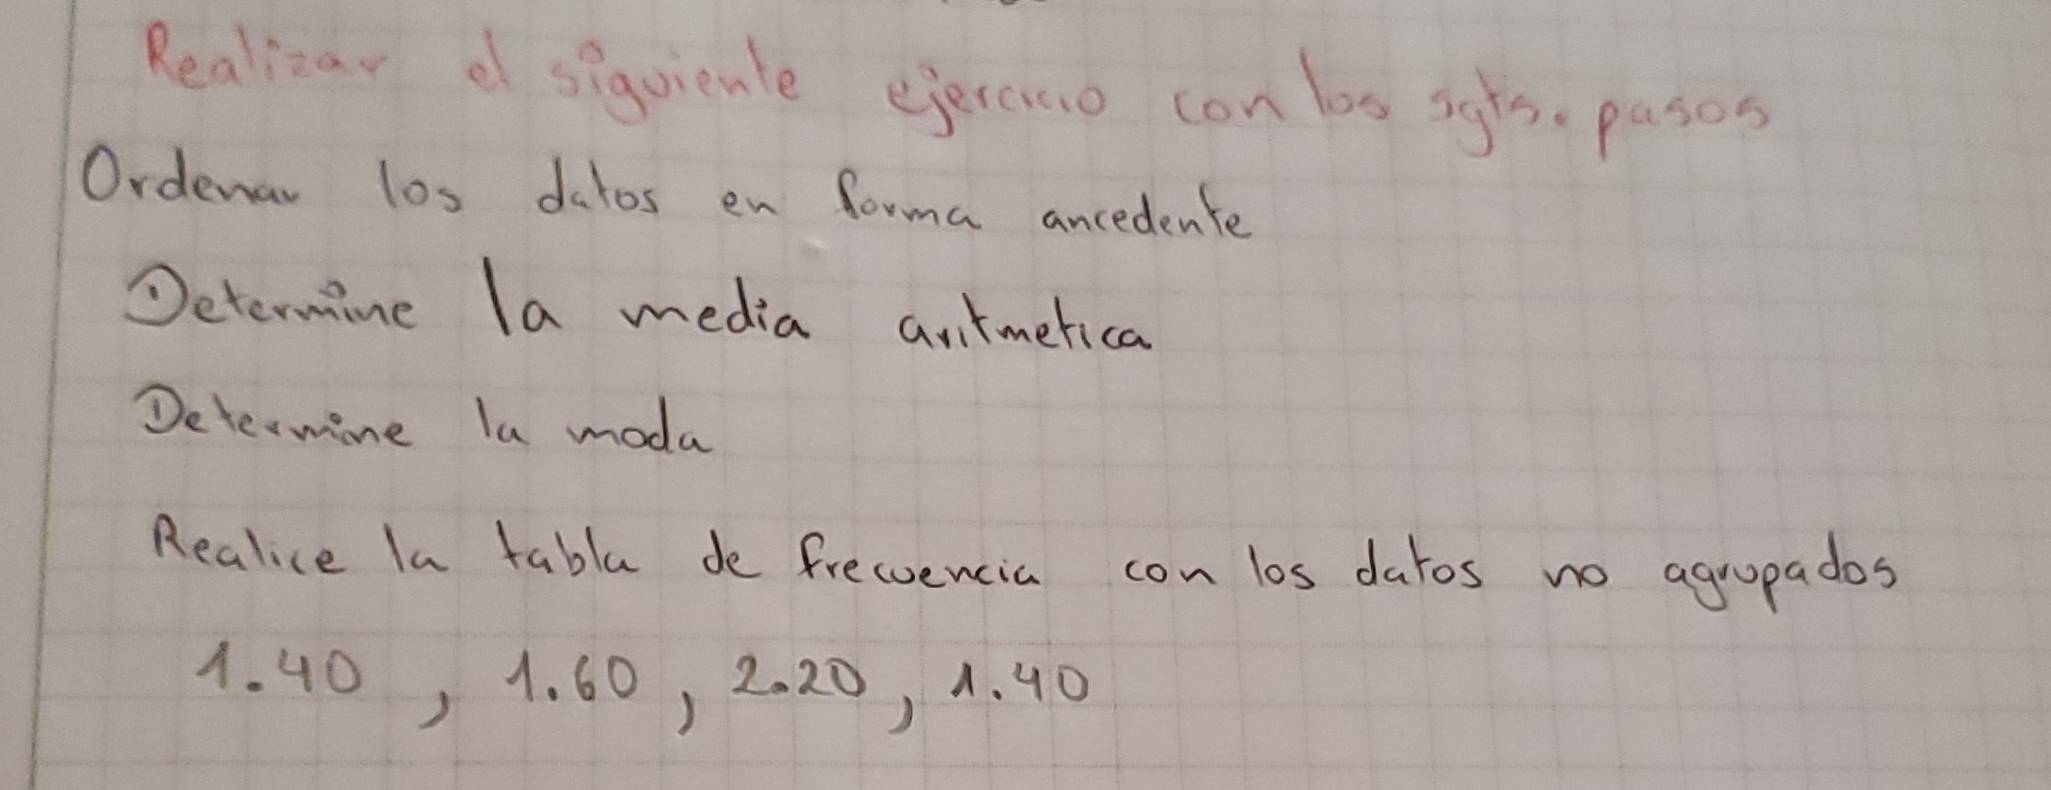 Realizar el siguiente ejercicio con los sgts. pasos
Ordenar los datos en forma ancedente
Determine la media aritmetica
Determine la moda
Realice la tabla de frecuencia con los datos no agrupados
1.40, 1.60, 2.20, 1.40